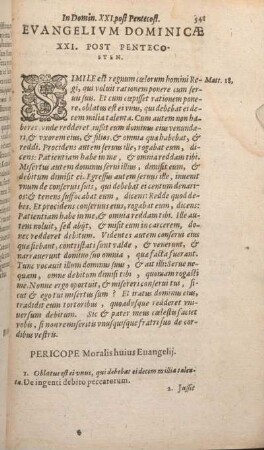 In Domin. XXI. post Pentecost. 541
EVANGELIVM DOMINICÆ
XXI. POST PENTECO-
STEN.
SIMILE est regnum cœlorum homini Re- Matt. 18.
gi, qui voluit rationem ponere cum ser-
uis suis. Et cum cœpisset rationem pone-
re, oblatus est ei vnus, qui debebat ei de-
cem milia talenta. Cum autem non ha-
beret vnde redderet, iussit eum dominus eius venunda-
ri, & vxorem eius, & filios, & omnia quæ habebat, &
reddi. Procidens autem seruus ille, rogabat eum,
dicens: Patientiam habe in me, & omnia reddam tibi.
Misertus autem dominus serui illius, dimisit eum, &
debitum dimisit ei. Egressus autem seruus ille, inuenit
vnum de conseruis suis, qui debebat ei centum denari-
os: & tenens suffocabat eum, dicens: Redde quod de-
bes. Et procidens conseruus eius, rogabat eum, dicens:
Patientiam habe in me, & omnia reddam tibi. Ille au-
tem noluit, sed abijt, & misit eum in carcerem, do-
nec redderet debitum. Videntes autem conserui eius
quæ fiebant, contristati sunt valde, & venerunt, &
narrauerunt domino suo omnia, quæ facta fuerant.
Tunc vocauit illum dominus suus, & ait illi: Serue ne-
quam, omne debitum dimisi tibi, quoniam rogasti
me. Nonne ergo oportuit, & misereri conserui tui, si-
cut & ego tui misertus sum? Et iratus dominus eius,
tradidit eum tortoribus, quoadusque redderet vni-
uersum debitum. Sic & pater meus cœlestis faciet
vobis, si non remiseritis vnusquisque fratri suo de cor-
dibus vestris.
PERICOPE Moralis huius Euangelij.
1. Oblatus est ei vnus, qui debebat ei decem milia talen-
ta. De ingenti debito peccatorum.
2. Iussit